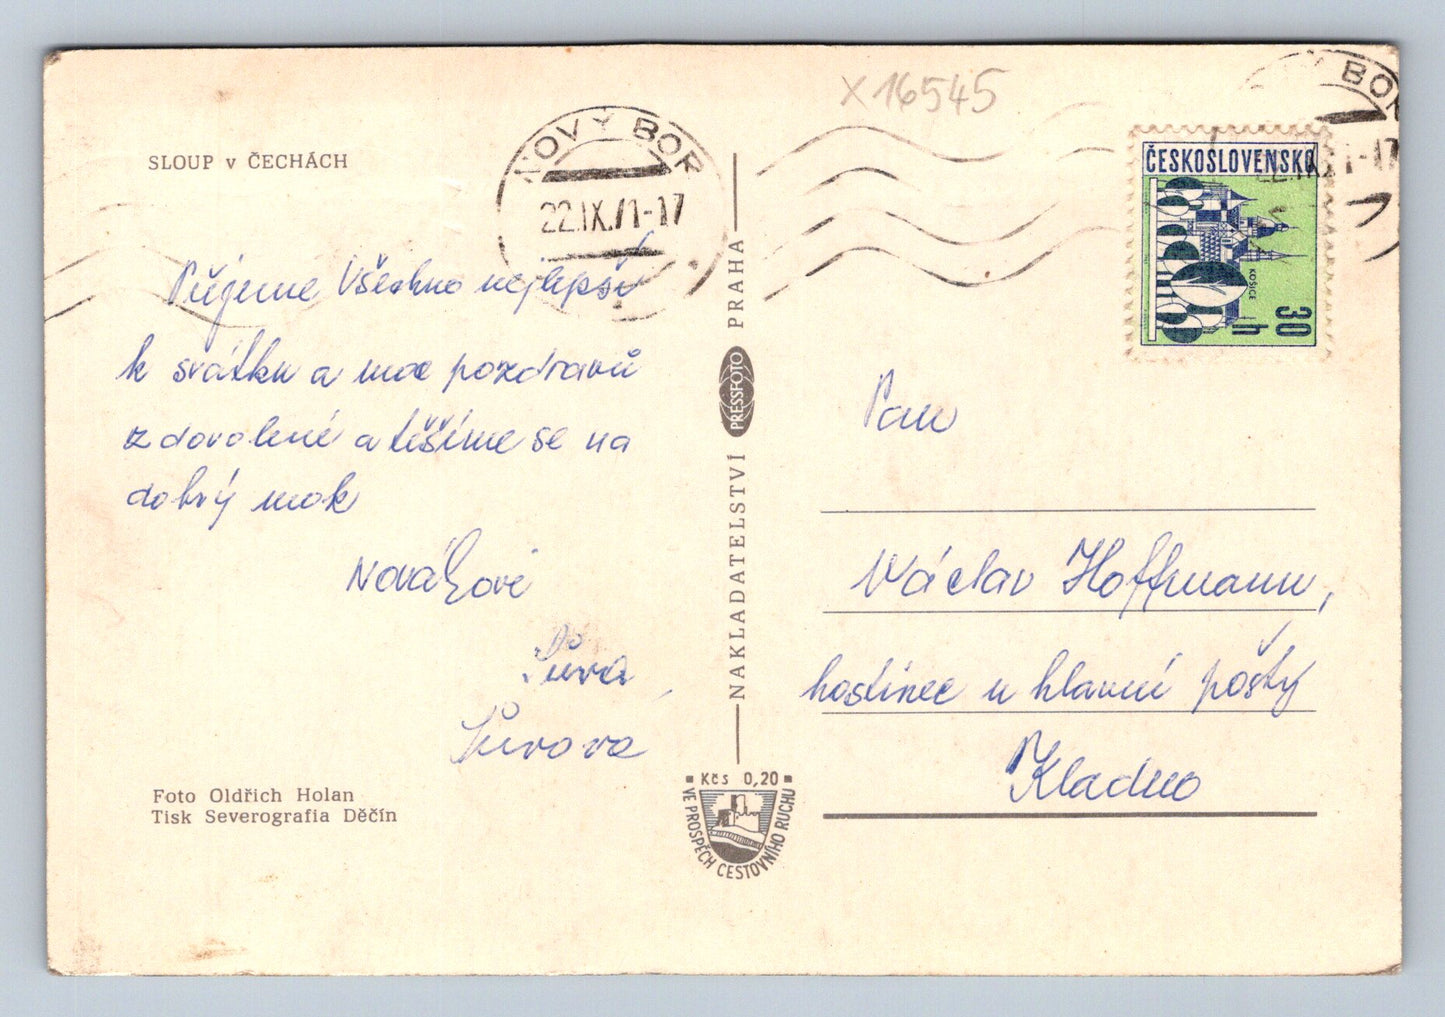 x 16545
SLOUP v ČECHÁCH
NOVÝ BOR
22.IX.71-17
Přejeme Všechno nejlepší
k svátku a moc pozdravů
z dovolené a těšíme se na
dobrý mok
Novákovi
Sůva
Sůrova
Foto Oldřich Holan
Tisk Severografia Děčín
NAKLADATELSTVÍ PRESSFOTO PRAHA
Kčs 0,20
VE PROSPĚCH CESTOVNÍHO RUCHU
Ý BOR
-17
ČESKOSLOVENSKO
KOŠICE
30 h
Pan
Václav Hoffmann,
hostinec u hlavní pošty
Kladno